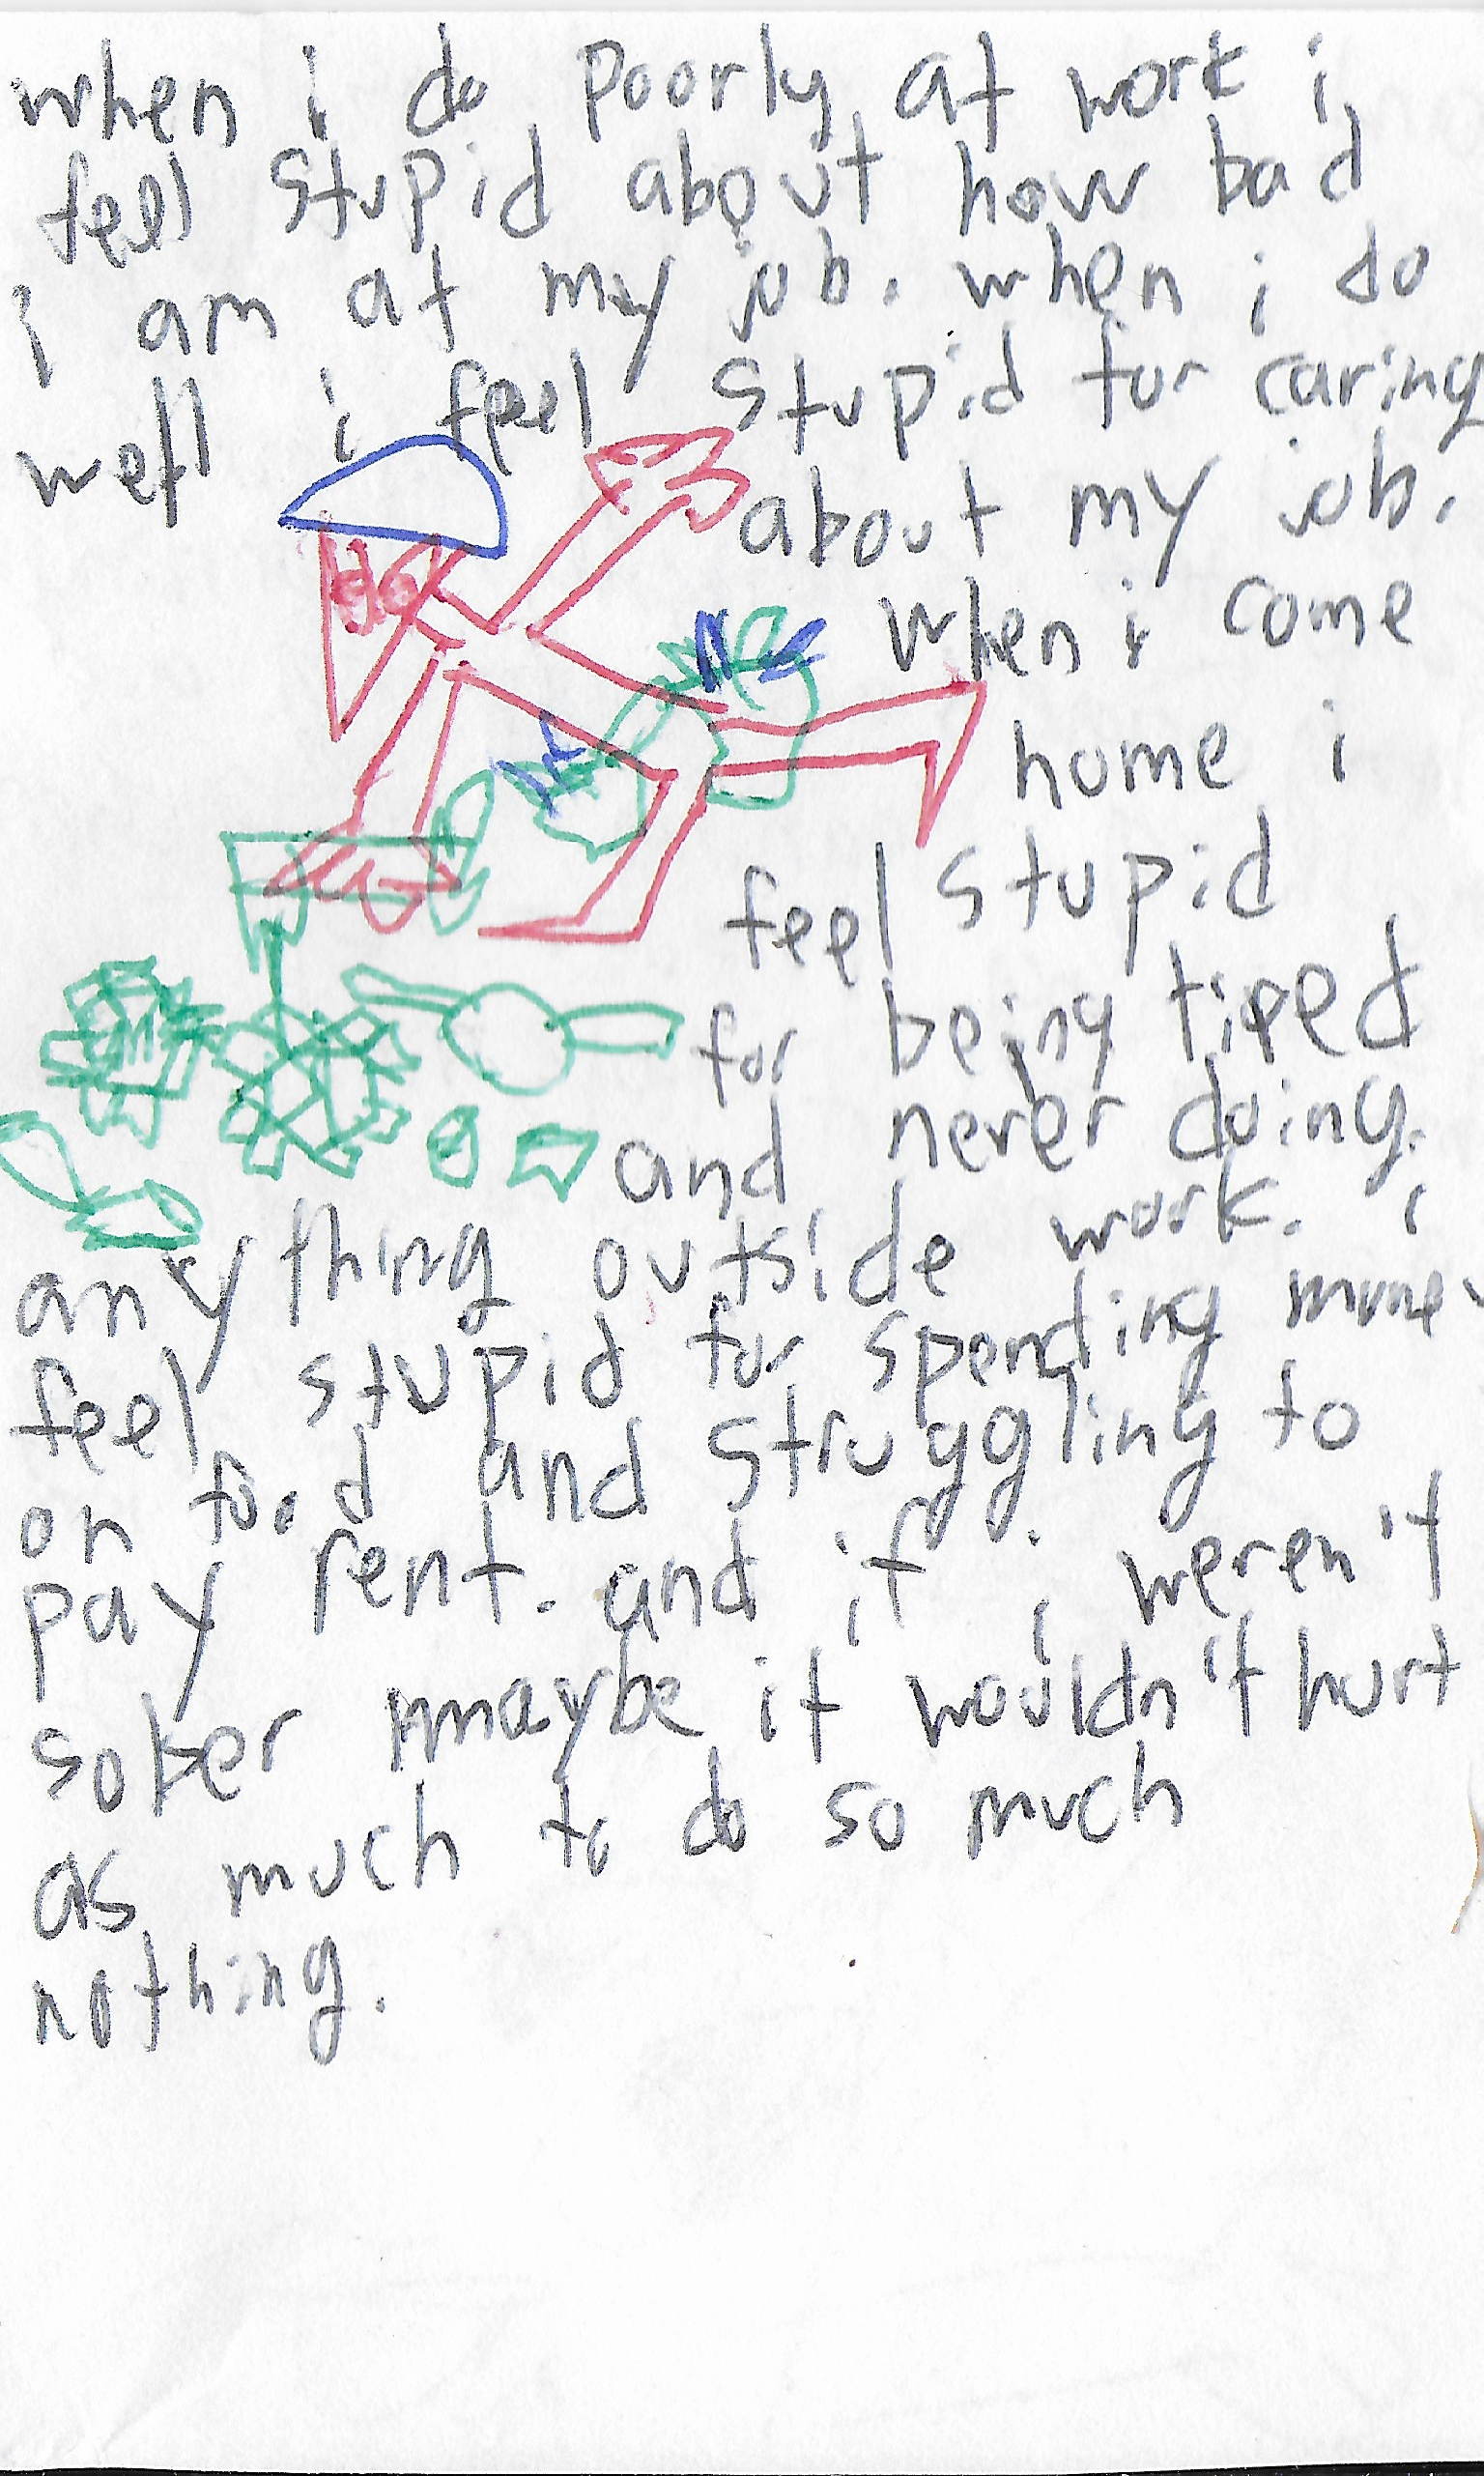 when i do poorly at work i
feel stupid about how bad
i am at my job. when i do
well i feel stupid for caring
about my job.
when i come
home i
feel stupid
for being tired
and never doing
anything outside work. i
feel stupid for spending money
on food and struggling to
pay rent. and if i weren't
sober maybe it wouldn't hurt
as much to do so much
nothing.